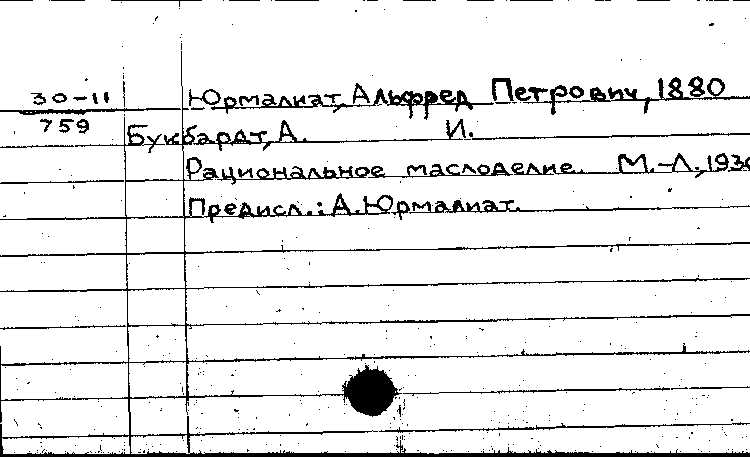 30-11 Юрмалиат, Альфред Петрович, 1880
759 Букбардт, А. И.
Рациональное маслоделие. М.-Л., 1930
Предисл.: А. Юрмалиат.